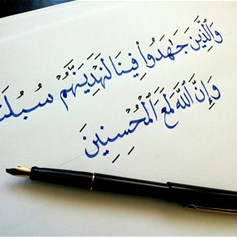 وَالَّذِينَ جَهَدُوا فِينَا لَنَهْدِيَنَّهُمْ سُبُلَنَا
وَإِنَّ اللَّهَ لَمَعَ الْمُحْسِنِينَ